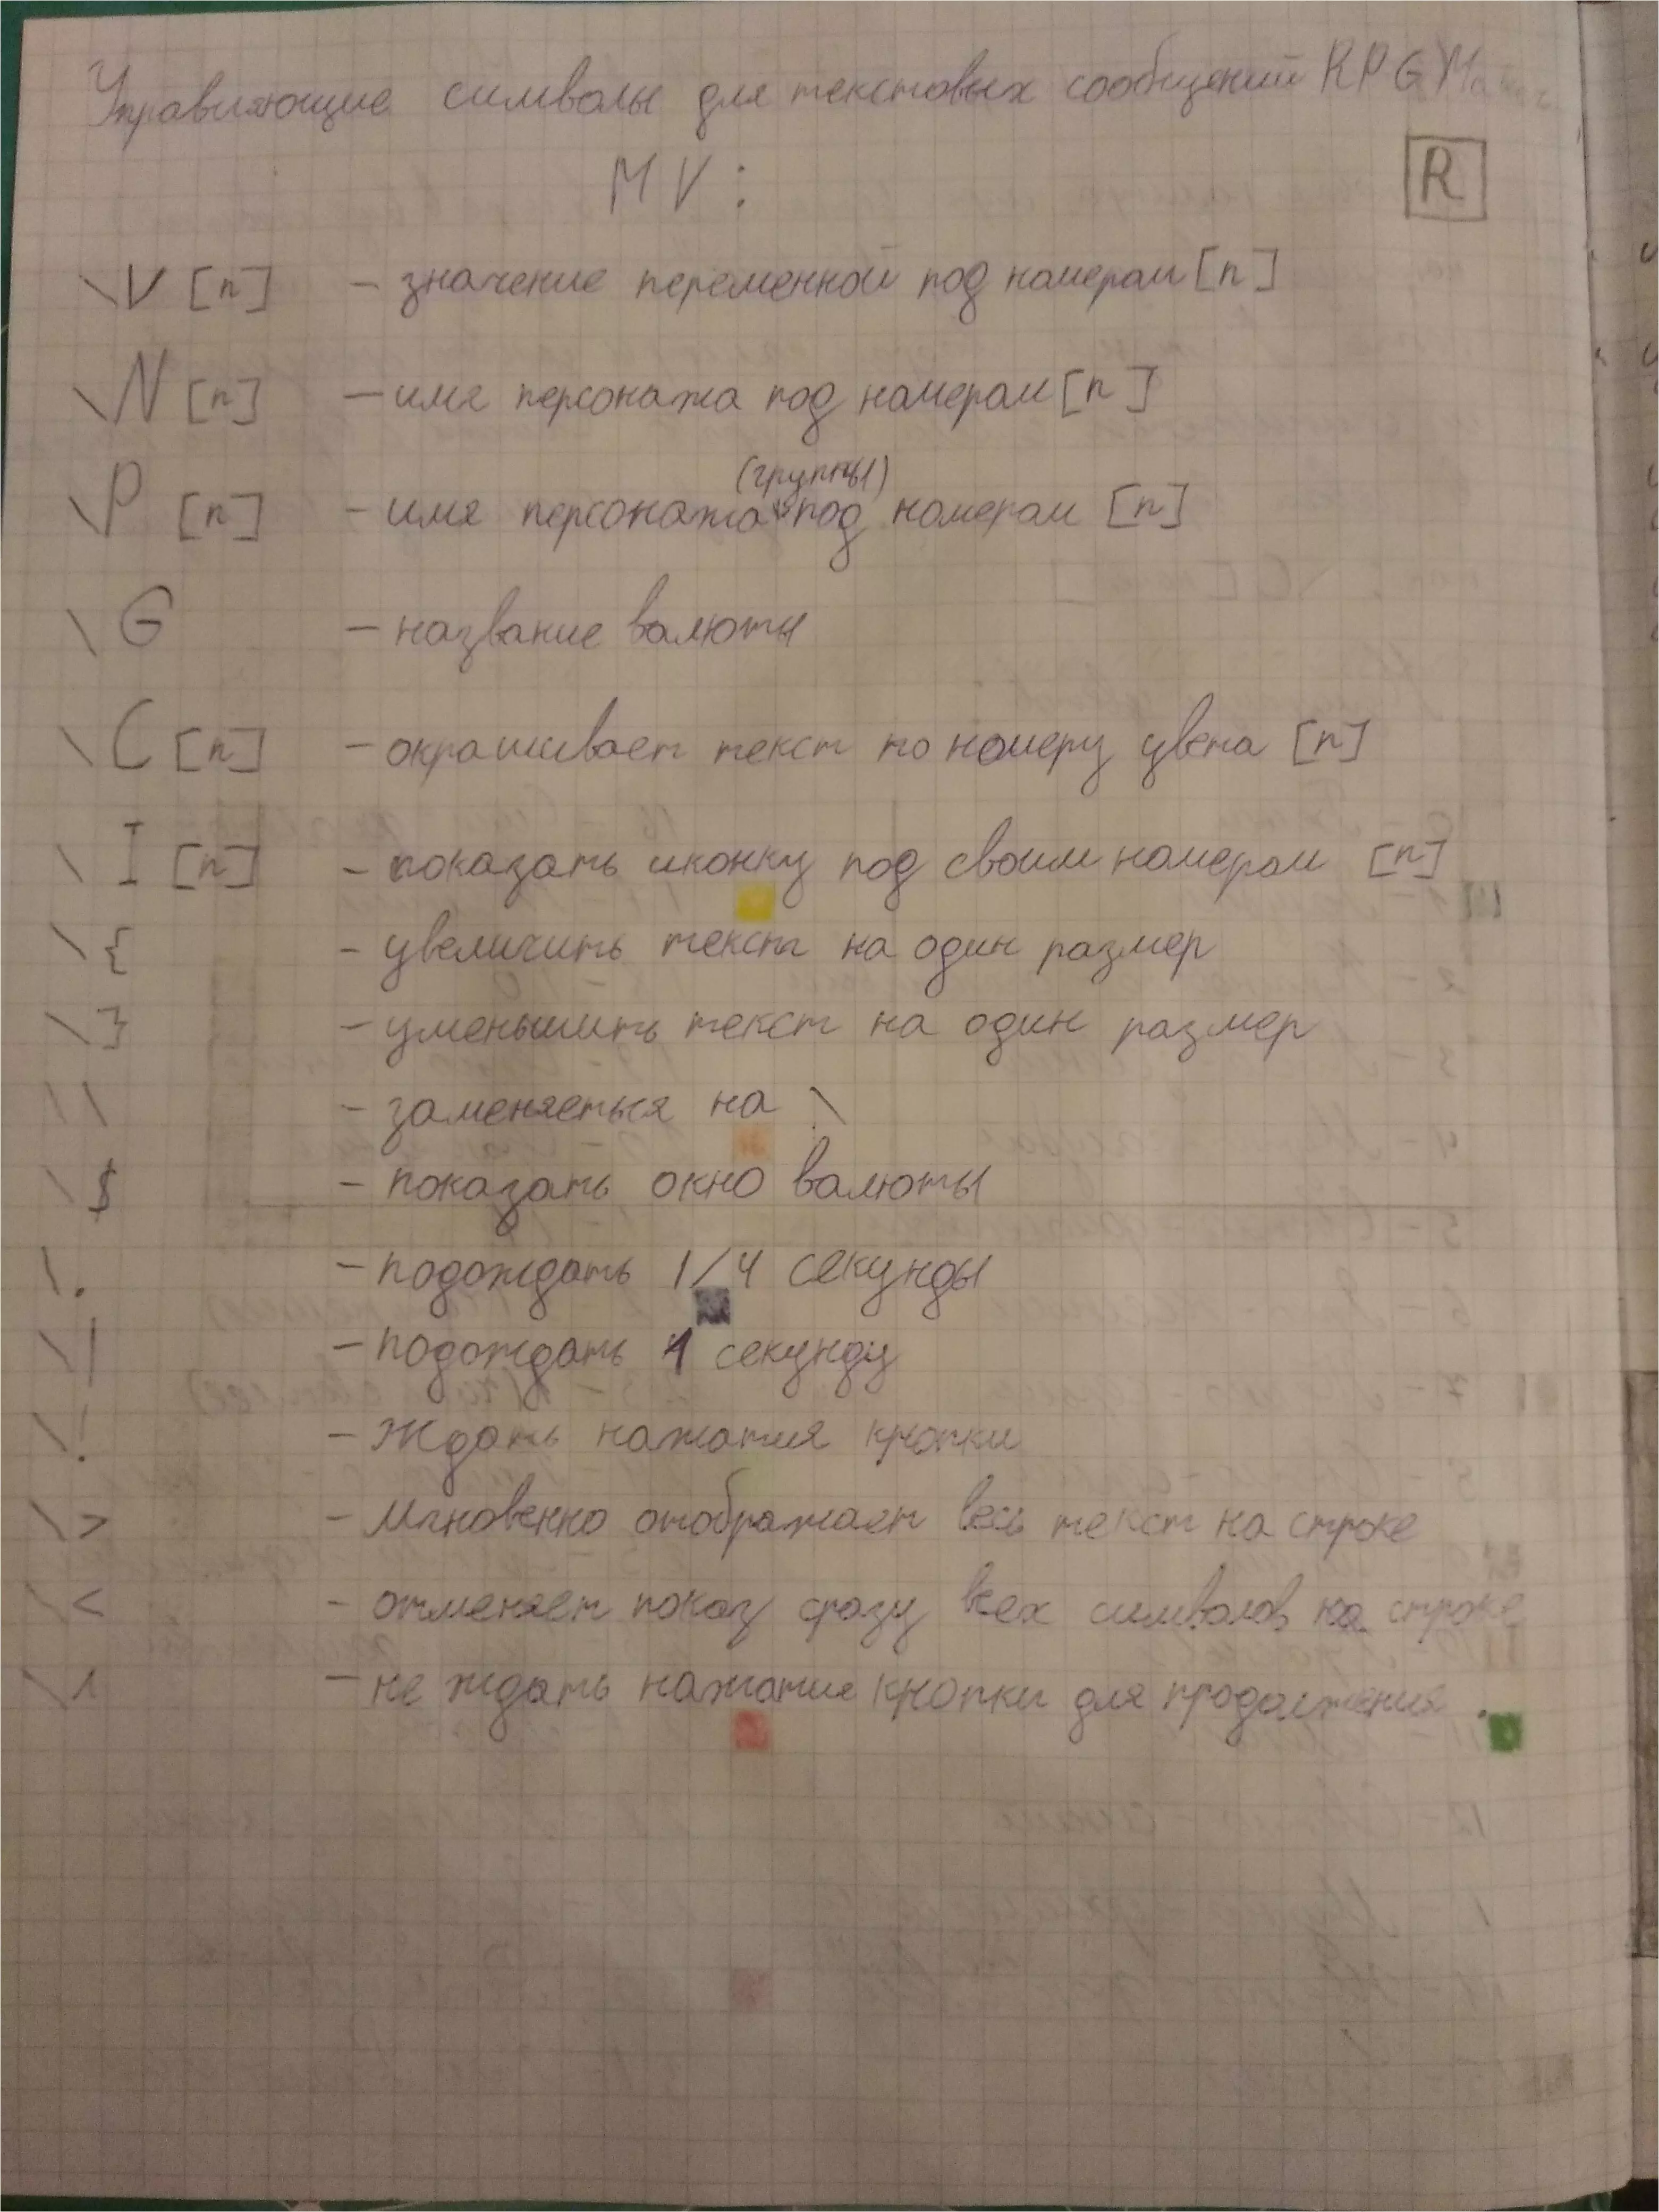 Управляющие символы для текстовых сообщений RPG Maker
MV:
R
\V [n] - значение переменной под номером [n]
\N [n] - имя персонажа под номером [n]
(группы)
\P [n] - имя персонажа под номером [n]
\G - название валюты
\C [n] - окрашивает текст по номеру цвета [n]
\I [n] - показать иконку под своим номером [n]
\{ - увеличить текст на один размер
\} - уменьшить текст на один размер
\\ - заменяеться на \
\$ - показать окно валюты
\. - подождать 1/4 секунды
\| - подождать 1 секунду
\! - Ждать нажатия кнопки
\> - Мгновенно отображает весь текст на строке
\< - отменяет показ сразу всех символов на строке
\^ - не ждать нажатия кнопки для продолжения.